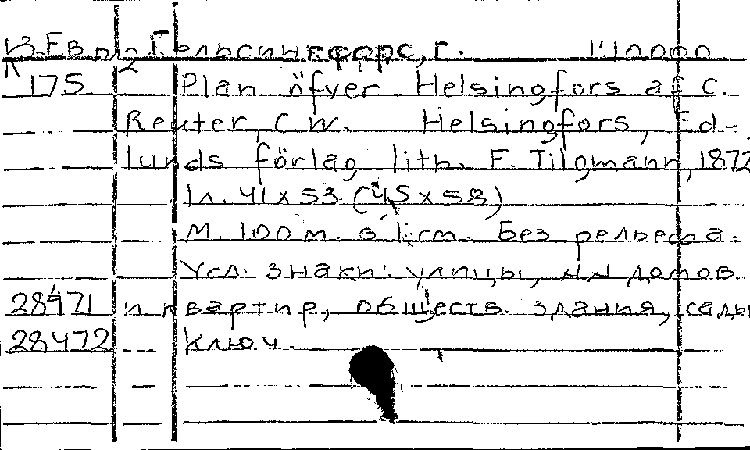 Гельсингфорс, г. 1:10000
175 Plan öfver Helsingfors af C.
Reuter, C W. Helsingfors, Ed-
lunds förlag lith. F. Tilgmann, 1872
1 л. 41 x 53 (45 x 58)
М. 100 м. в 1 см. Без рельефа.
Усл. знаки: улицы, №№ домов
28471 и квартир, обществ. здания, сады
28472 Ключ.